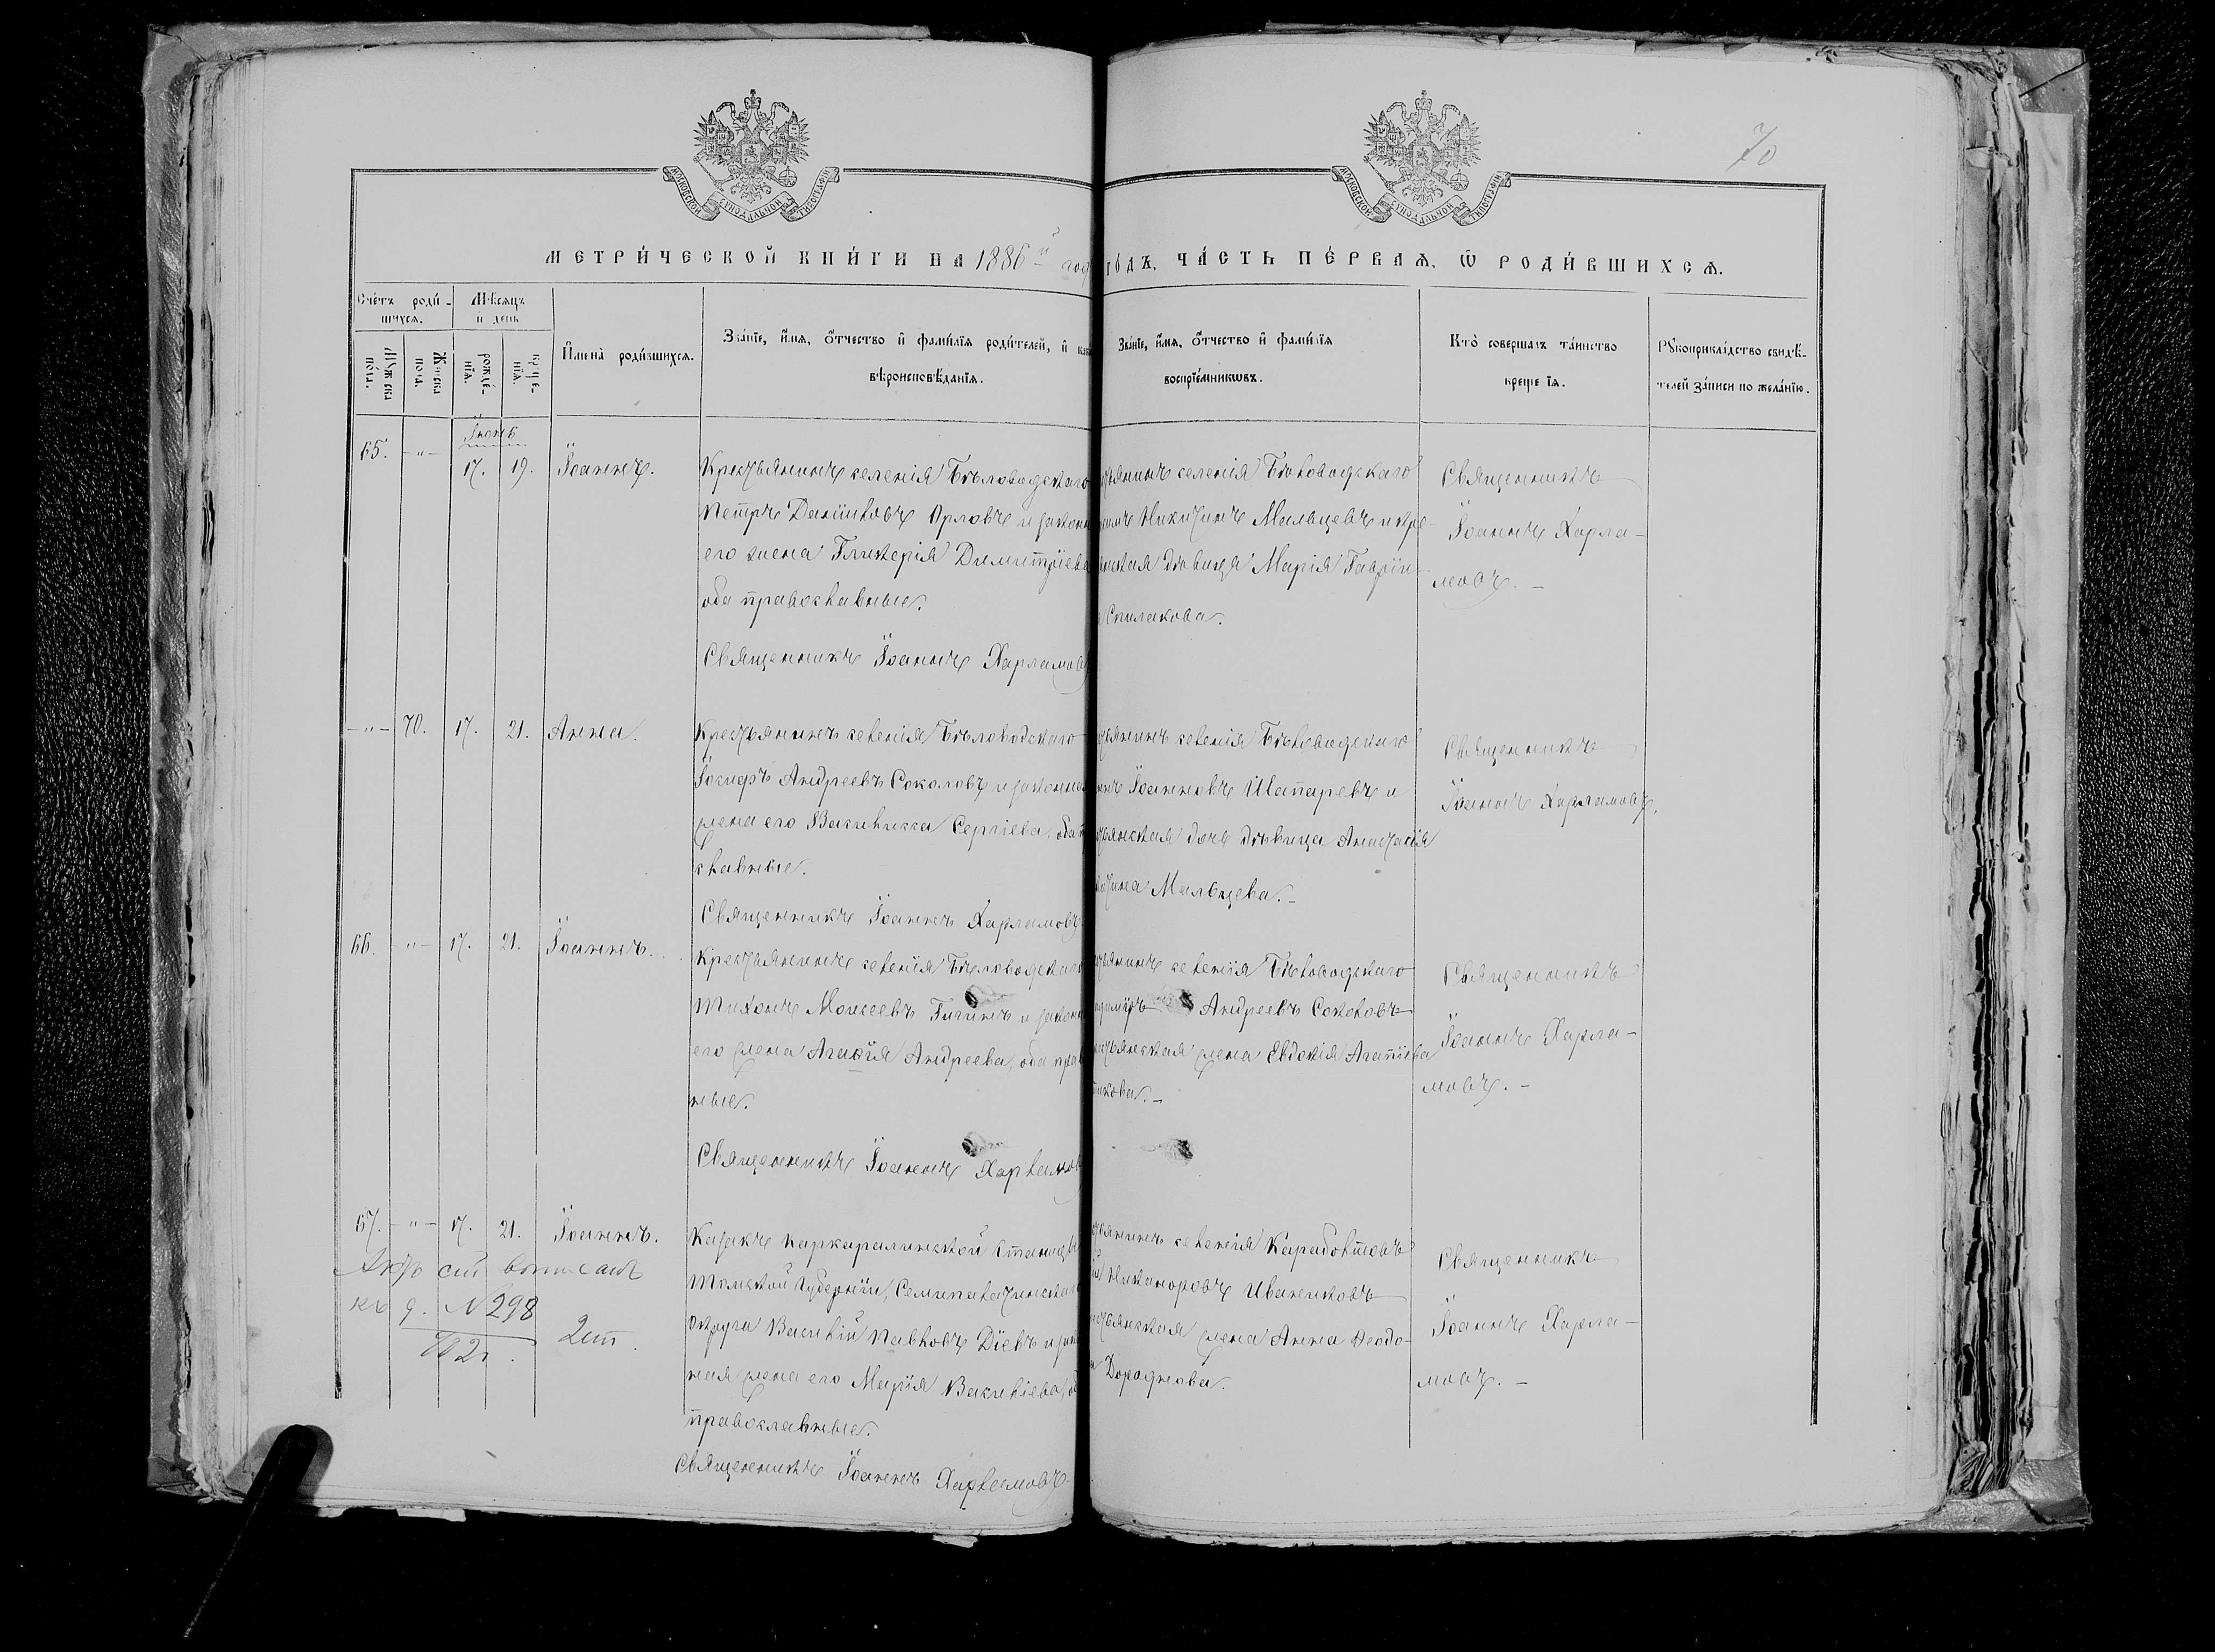 70
МЕТРИ́ЧЕСКОЙ КНИ́ГИ НА 1886й год
ГО́ДЪ, ЧА́СТЬ ПЕ́РВАѦ, Ѡ РОДИ́ВШИХСѦ.
Счётъ роди-
шихсѧ.
Мѣсѧцъ
и день
Мужска
пола.
Женска
пола.
рожде́-
нїѧ.
креще-
нїѧ.
И҆мена̀ роди́вшихсѧ.
Зва́нїе, и҆́мѧ, ѻ҆́тчество и҆ фами́лїѧ роди́телей, и҆
вѣроисповѣ́данїѧ.
Зва́нїе, и҆́мѧ, ѻ҆́тчество и҆ фами́лїѧ
воспрїе́мникѡвъ.
Кто̀ соверша́лъ та́инство
креще їѧ.
Рукоприкла́дство свидѣ́-
телей за́писи по жела́нїю.
Іюнь
65. -"- 17. 19. Іоаннъ.
Крестьянинъ селенія Бѣловодскаго
Петръ Даніиловъ Орловъ и законн
его жена Гликерія Димитріева
оба православные.
Священникъ Іоаннъ Харламовъ
тьянинъ селенія Бѣловодскаго
Никитинъ Мальцевъ и кре-
дѣвица Марія Гаврiи-
Спилакова.
Священникъ
Іоаннъ Харла-
мовъ. -
-"- 70. 17. 21. Анна.
Крестьянинъ селенія Бѣловодскаго
Іосифъ Андреевъ Соколовъ и законна
жена его Василисса Сергіева, оба п
славные.
Священникъ Іоаннъ Харламовъ
тьянинъ селенія Бѣловодскаго
Іоанновъ Шапаревъ и
тьянская дочь дѣвица Анастасія
Мальцева. -
Священникъ
Іоаннъ Харламовъ.
66. -"- 17. 21. Іоаннъ.
Крестьянинъ селенія Бѣловодскаго
Тихонъ Моисеевъ Гигинъ и законн
его жена Агаѳія Андреева, оба прав
ные.
Священникъ Іоаннъ Харламовъ
тьянинъ селенія Бѣловодскаго
Андреевъ Соколовъ
стьянская жена Евдокія Агапіева
Священникъ
Іоаннъ Харла-
мовъ. -
67. -"- 17. 21. Іоаннъ.
№ 298
Казакъ Каркаралинской станицы
Томской Губерніи, Семипалатинскаго
Округа Василій Павловъ Діевъ и зак
ная жена его Марія Василіева, об
православные.
Священникъ Іоаннъ Харламовъ
тьянинъ селенія
Никаноровъ Иваненковъ
стьянская жена Анна Ѳеодо-
Священникъ
Іоаннъ Харла-
мовъ. -